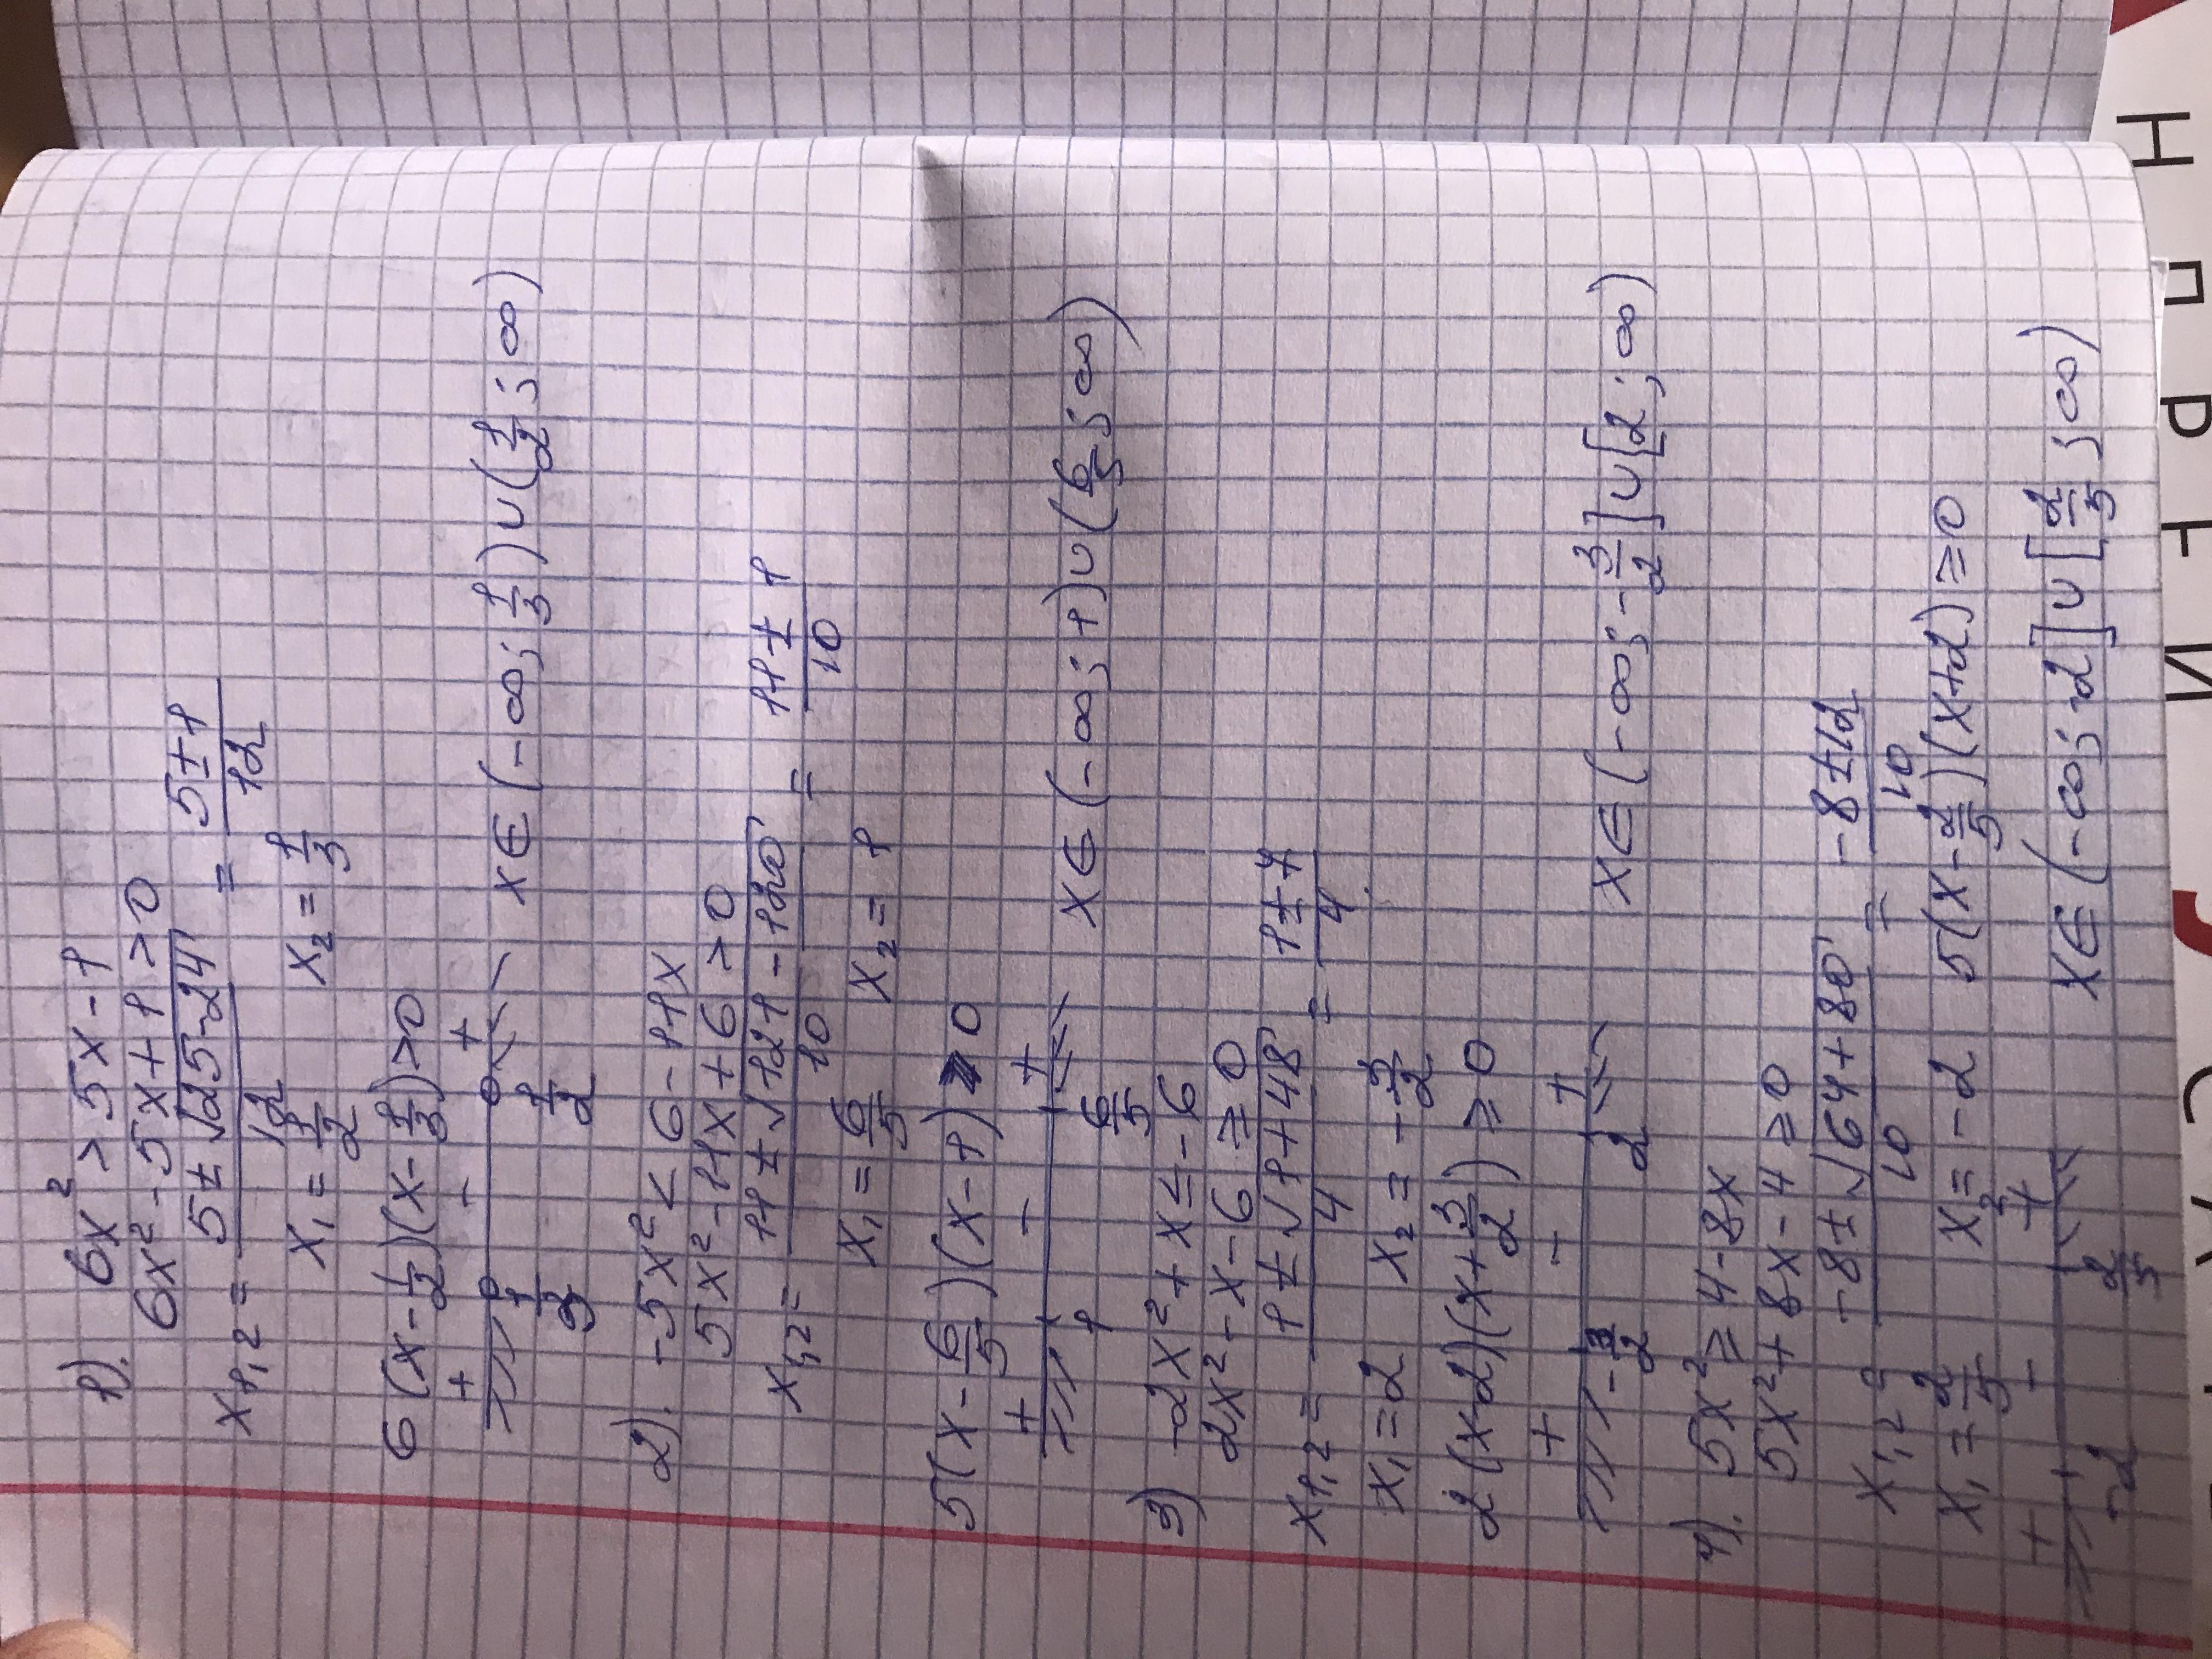 1). 6x² > 5x - 1
6x² - 5x + 1 > 0
x₁,₂ = (5 ± √(25-24))/12 = (5 ± 1)/12
x₁ = 1/2 x₂ = 1/3
6(x - 1/2)(x - 1/3) > 0
+ - +
1/3 1/2 x ∈ (-∞; 1/3) ∪ (1/2; ∞)
2). -5x² < 6 - 11x
5x² - 11x + 6 > 0
x₁,₂ = (11 ± √(121 - 120))/10 = (11 ± 1)/10
x₁ = 6/5 x₂ = 1
5(x - 6/5)(x - 1) > 0
+ - +
1 6/5 x ∈ (-∞; 1) ∪ (6/5; ∞)
3) -2x² + x ≤ -6
2x² - x - 6 ≥ 0
x₁,₂ = (1 ± √(1 + 48))/4 = (1 ± 7)/4
x₁ = 2 x₂ = -3/2
2(x-2)(x + 3/2) ≥ 0
+ - +
-3/2 2 x ∈ (-∞; -3/2] ∪ [2; ∞)
4). 5x² ≥ 4 - 8x
5x² + 8x - 4 ≥ 0
x₁,₂ = (-8 ± √(64 + 80))/10 = (-8 ± 12)/10
x₁ = 2/5 x₂ = -2 5(x - 2/5)(x+2) ≥ 0
+ - +
-2 2/5 x ∈ (-∞; -2] ∪ [2/5; ∞)